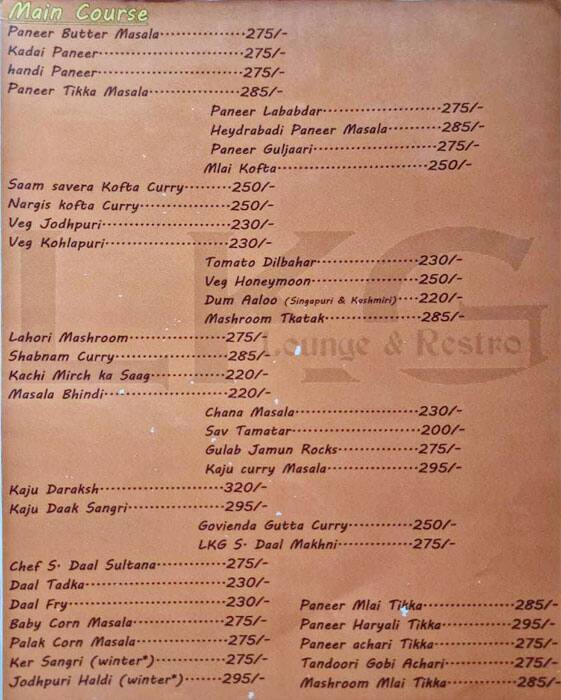 Main Course
Paneer Butter Masala 275/-
Kadai Paneer 275/-
handi Paneer 275/-
Paneer Tikka Masala 285/-
Paneer Lababdar 275/-
Heydrabadi Paneer Masala 285/-
Paneer Guljaari 275/-
Mlai Kofta 250/-
Saam savera Kofta Curry 250/-
Nargis kofta Curry 250/-
Veg Jodhpuri 230/-
Veg Kohlapuri 230/-
Tomato Dilbahar 230/-
Veg Honeymoon 250/-
Dum Aaloo (Singapuri & Kashmiri) 220/-
Mashroom Tkatak 285/-
LKG
Lounge & Restro
Lahori Mashroom 275/-
Shabnam Curry 285/-
Kachi Mirch ka Saag 220/-
Masala Bhindi 220/-
Chana Masala 230/-
Sav Tamatar 200/-
Gulab Jamun Rocks 275/-
Kaju curry Masala 295/-
Kaju Daraksh 320/-
Kaju Daak Sangri 295/-
Govienda Gutta Curry 250/-
LKG S. Daal Makhni 275/-
Chef S. Daal Sultana 275/-
Daal Tadka 230/-
Daal Fry 230/-
Baby Corn Masala 275/-
Palak Corn Masala 275/-
Ker Sangri (winter*) 275/-
Jodhpuri Haldi (winter*) 295/-
Paneer Mlai Tikka 285/-
Paneer Haryali Tikka 295/-
Paneer achari Tikka 275/-
Tandoori Gobi Achari 275/-
Mashroom Mlai Tikka 285/-